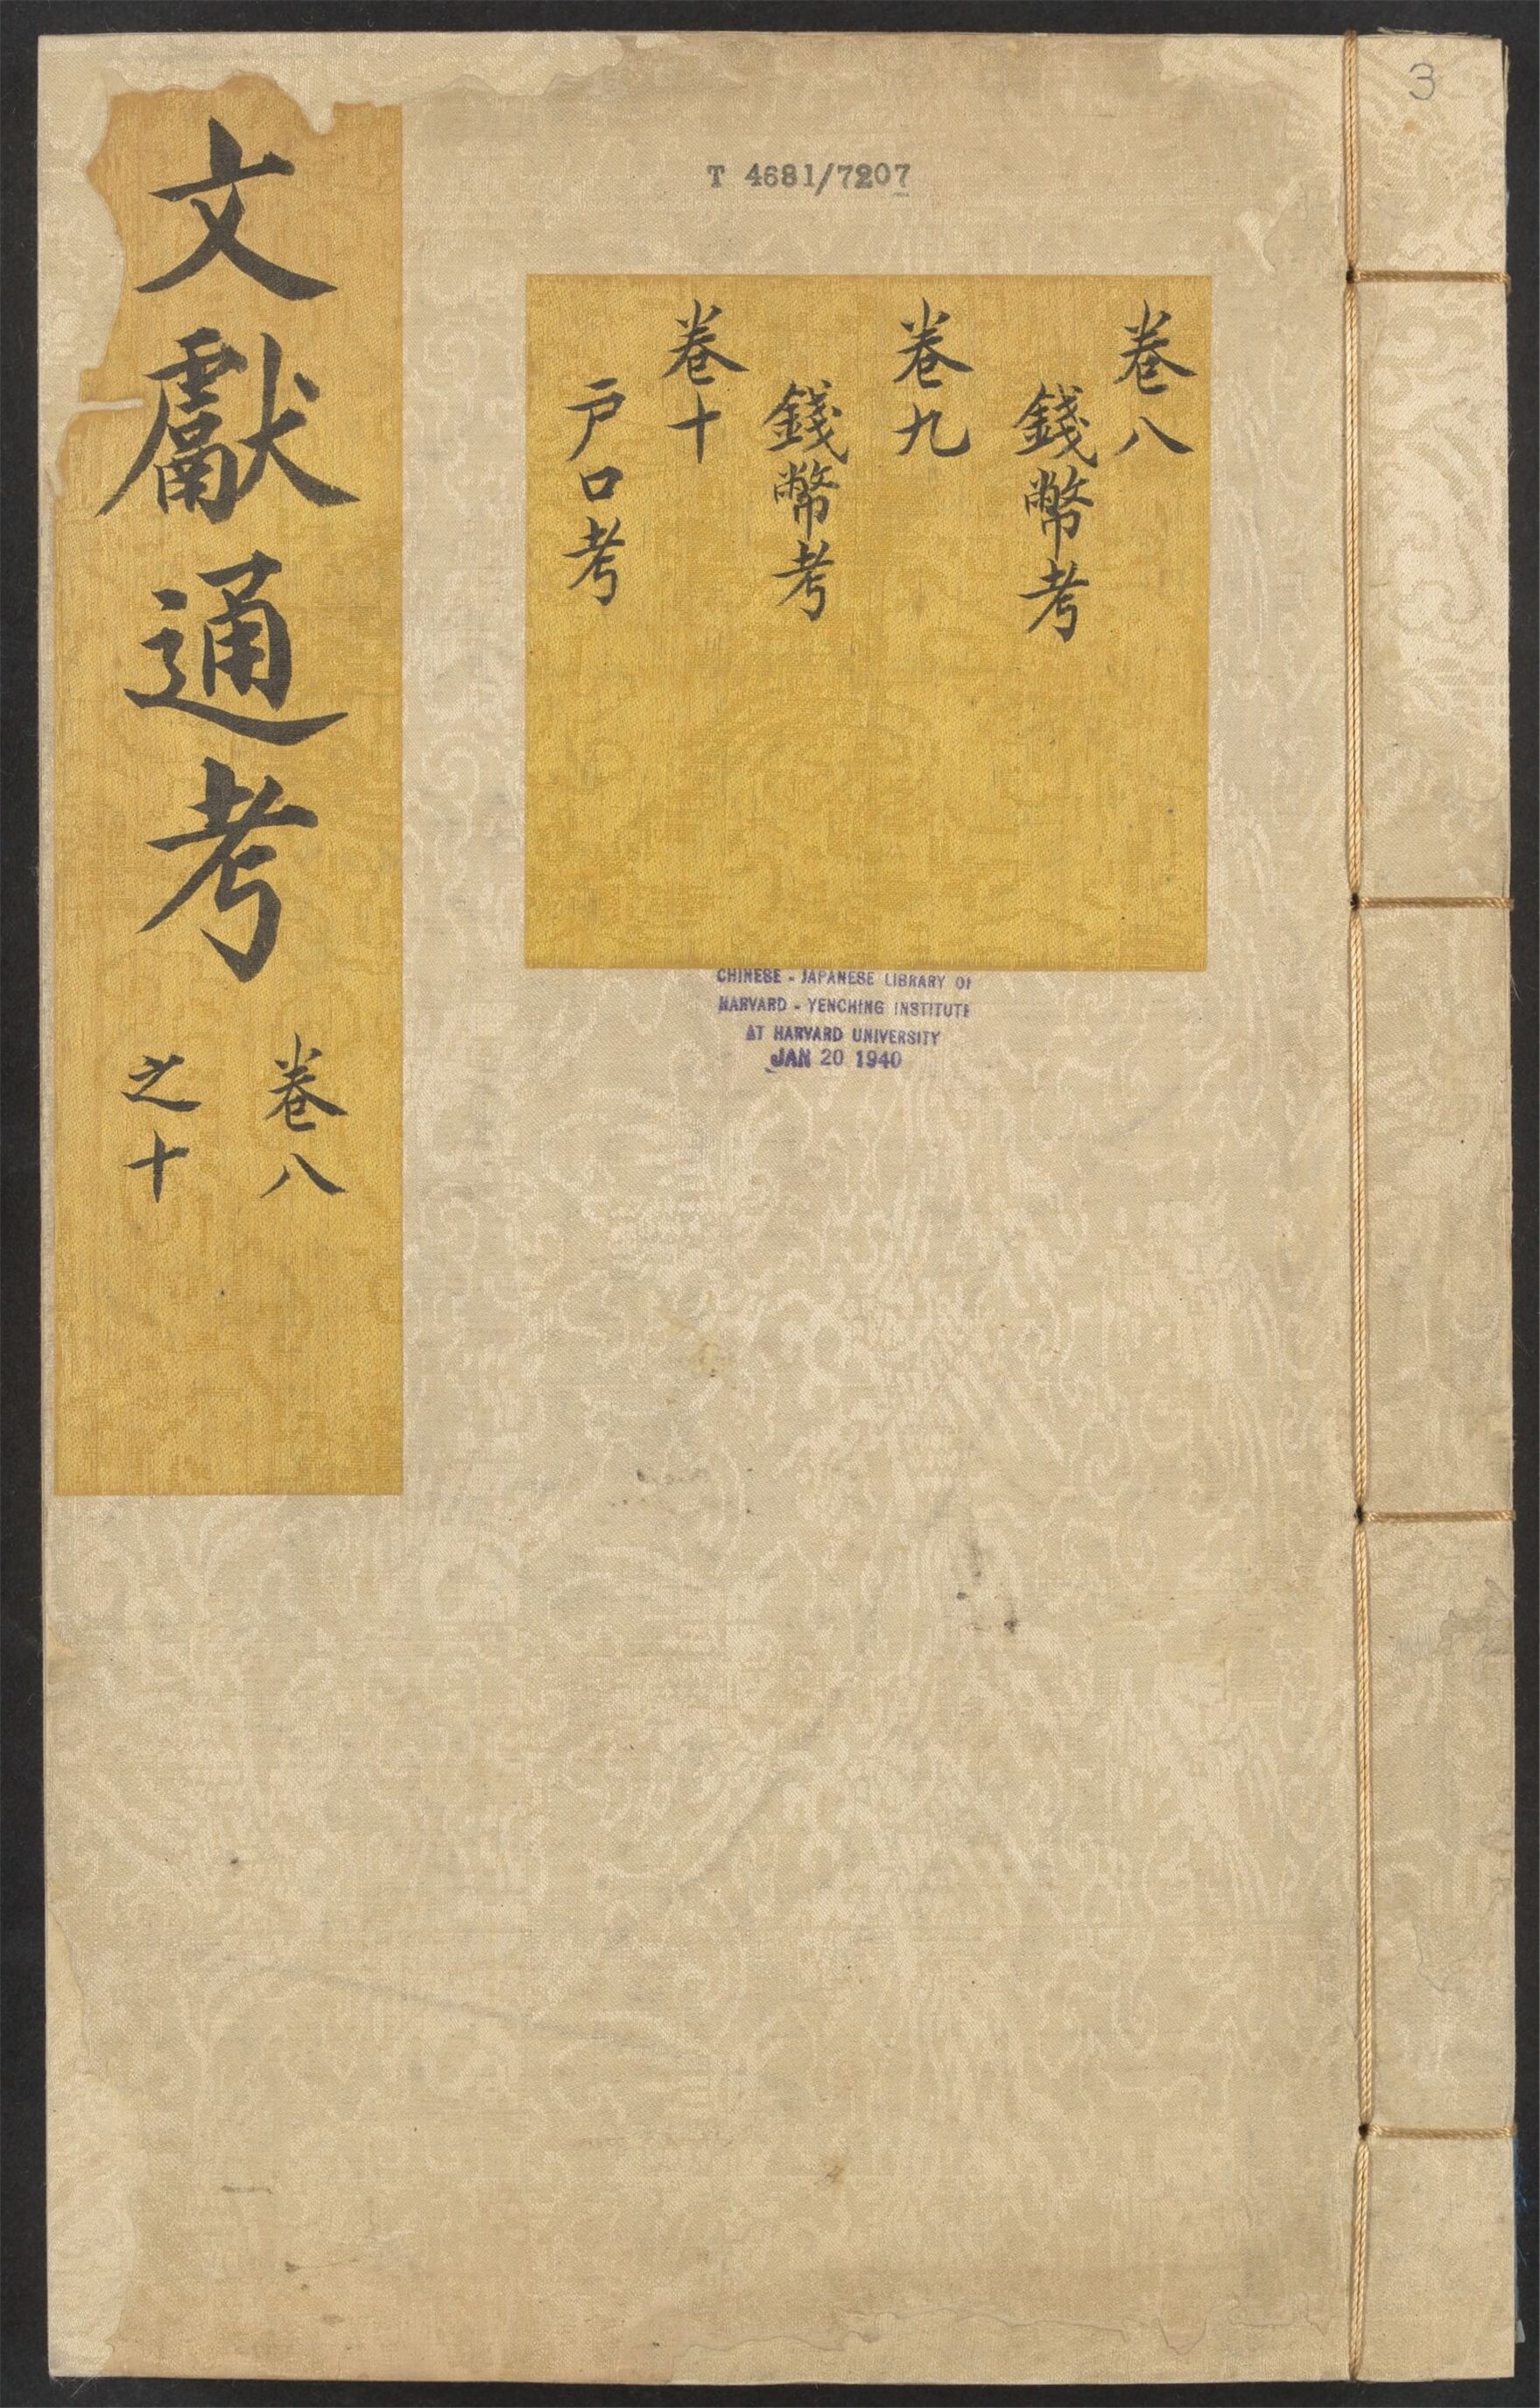 3
T 4681/7207
卷八
錢幣考
卷九
錢幣考
卷十
戶口考
文獻通考
卷八
之十
CHINESE - JAPANESE LIBRARY OF
HARVARD - YENCHING INSTITUTE
AT HARVARD UNIVERSITY
JAN 20 1940